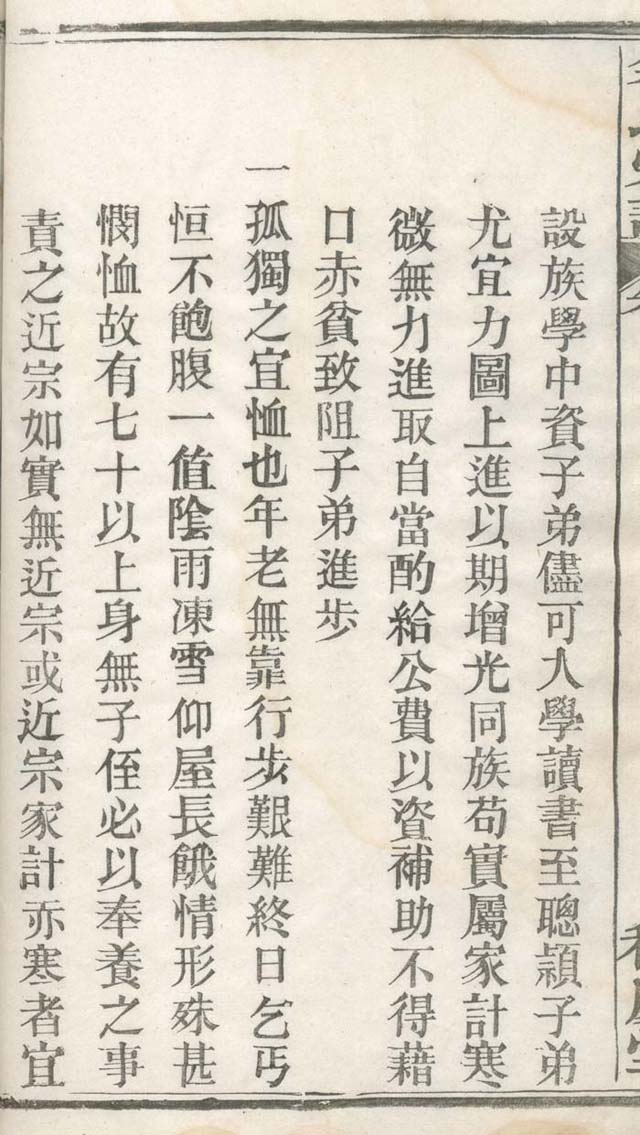 設族學中資子弟儘可入學讀書至聰穎子弟
尤宜力圖上進以期增光同族苟實屬家計寒
微無力進取自當酌給公費以資補助不得藉
口赤貧致阻子弟進步
一孤獨之宜恤也年老無靠行步艱難終日乞丐
恒不飽腹一值陰雨凍雪仰屋長餓情形殊甚
憫恤故有七十以上身無子侄必以奉養之事
責之近宗如實無近宗或近宗家計亦寒者宜